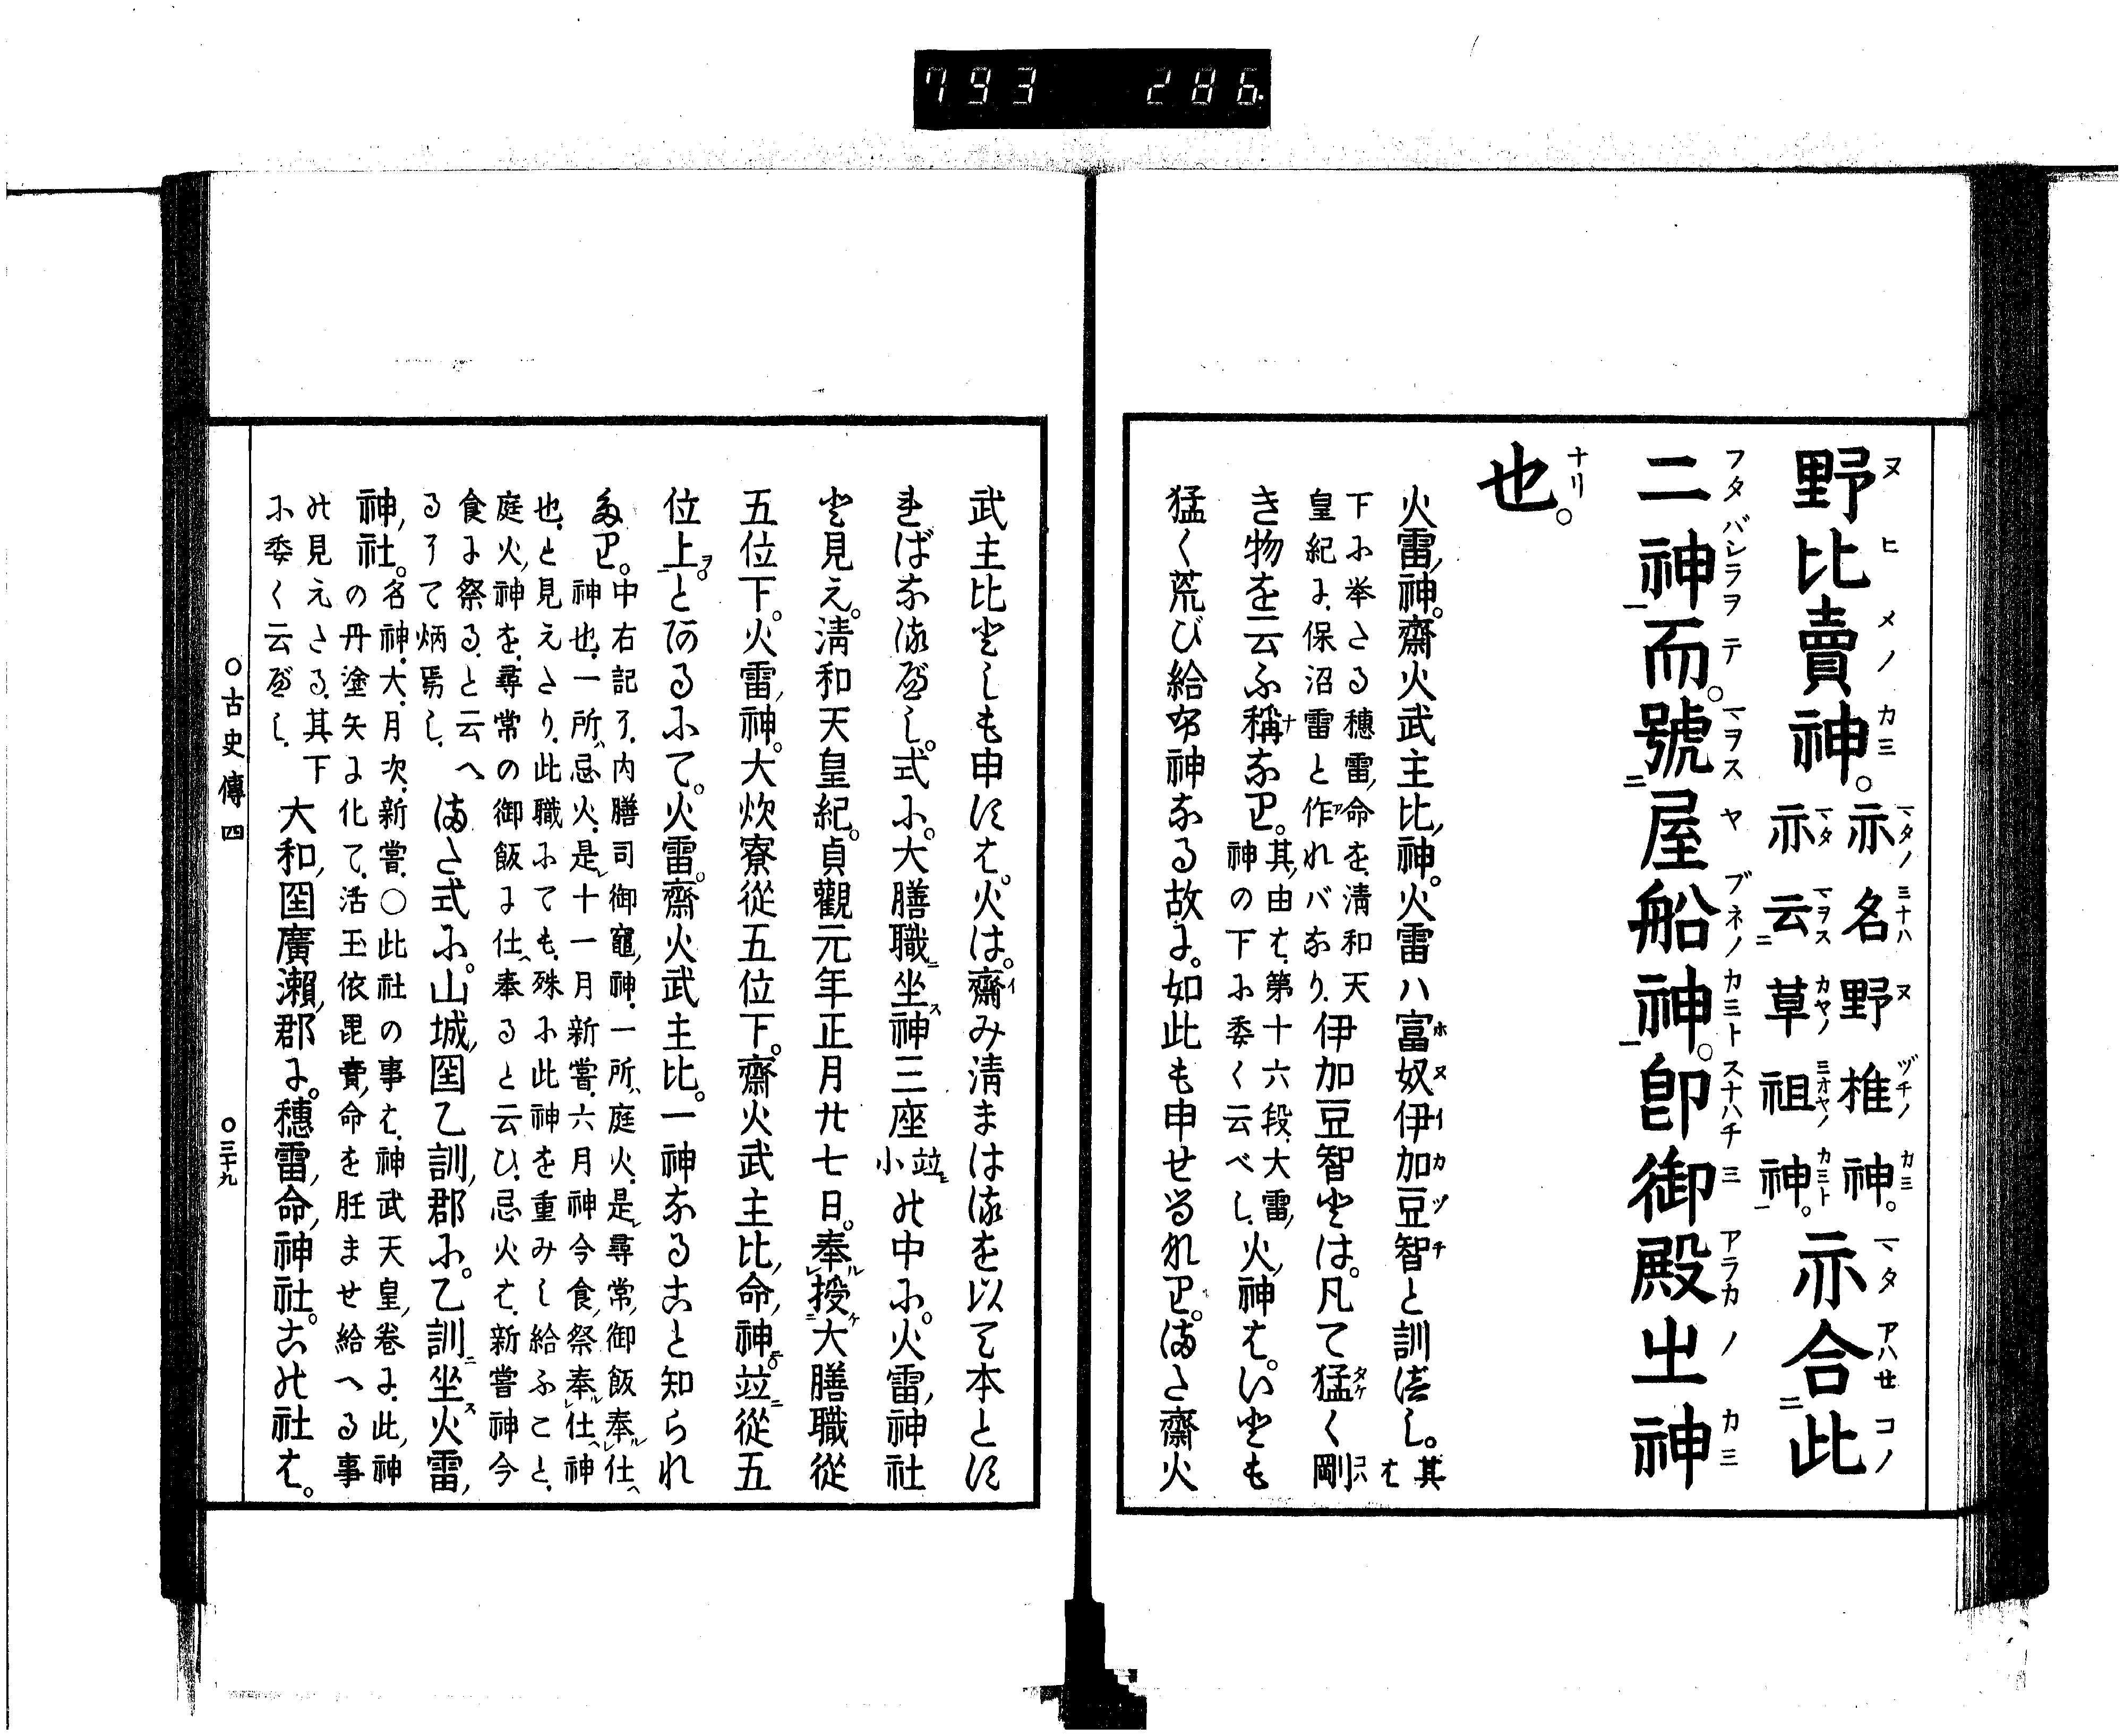 793 286
野比賣神。亦名野椎神。亦云草祖神。亦合此
二神而。號屋船神。卽御殿之神
也。
火雷神。齋火武主比神。火雷ハ富奴伊加豆智と訓べし。其は
下に擧たる穗雷命を、淸和天
皇紀に、保沼雷と作れバなり、伊加豆智とは。凡て猛く剛
き物を云ふ稱なり。其由は、第十六段、大雷
神の下に委く云べし、火神は。いとも
猛く荒び給ふ神なる故に。如此も申せるなり。また齋火
武主比としも申すは。火は。齋み淸まはるを以て本とす
ればなるべし。式に。大膳職坐神三座並小の中に。火雷神社
と見え。淸和天皇紀。貞觀元年正月廿七日。奉授大膳職從
五位下。火雷神。大炊寮從五位下。齋火武主比命神竝從五
位上。とあるにて。火雷。齋火武主比。一神なること知られ
たり。中右記ニ、内膳司御竈神、一所、庭火、是尋常御飯奉仕
神也、一所、忌火、是十一月新嘗、六月神今食祭奉仕神
也、と見えたり、此職にても、殊に此神を重みし給ふこと、
庭火神を、尋常の御飯に仕奉ると云ひ、忌火は、新嘗神今
食に祭る、と云へ
るにて炳焉し、また式に。山城國乙訓郡に。乙訓坐火雷
神社。名神、大、月次、新嘗、〇此社の事は、神武天皇卷に、此神
の丹塗矢に化て、活玉依毘賣命を妊ませ給へる事
の見えたる、其下
に委く云べし、大和國廣瀬郡に。穗雷命神社。この社は。
〇古史傳四
〇三十九